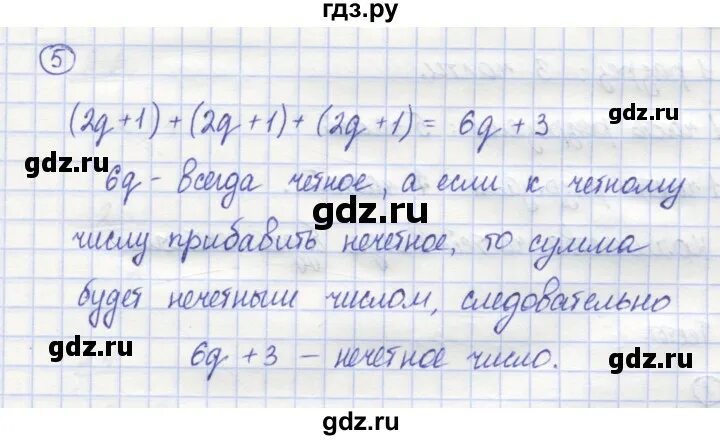 гдз.ру
5
(2q+1)+(2q+1)+(2q+1)= 6q+3
gdz.ru gdz.ru
6q - всегда четное, а если к четному
gdz.ru
числу прибавить нечетное, то сумма
будет нечетным числом, следовательно
gdz.ru gdz.ru
6q+3 - нечетное число.
gdz.ru